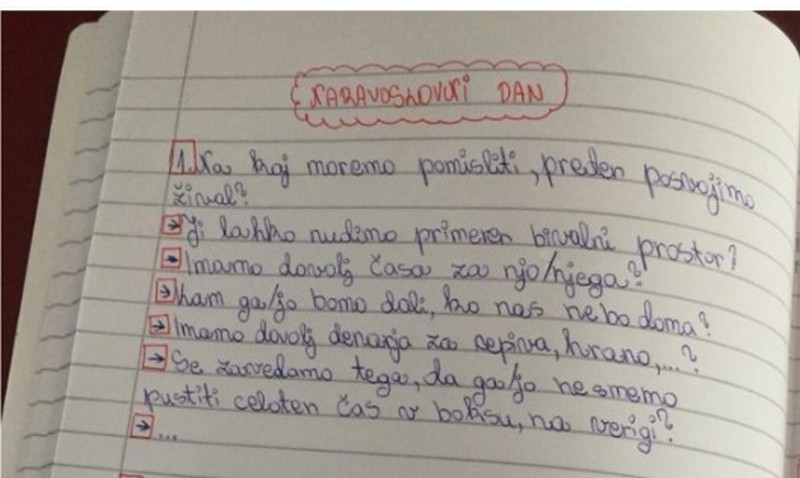 NARAVOSLOVNI DAN
1. Na kaj moremo pomisliti, preden posvojimo
žival?
→ Ji lahko nudimo primeren bivalni prostor?
→ Imamo dovolj časa za njo/njega?
→ Kam ga/jo bomo dali, ko nas ne bo doma?
→ Imamo dovolj denarja za cepiva, hrano,...?
→ Se zavedamo tega, da ga/jo ne smemo
pustiti celoten čas v boksu, na verigi?
→ ...